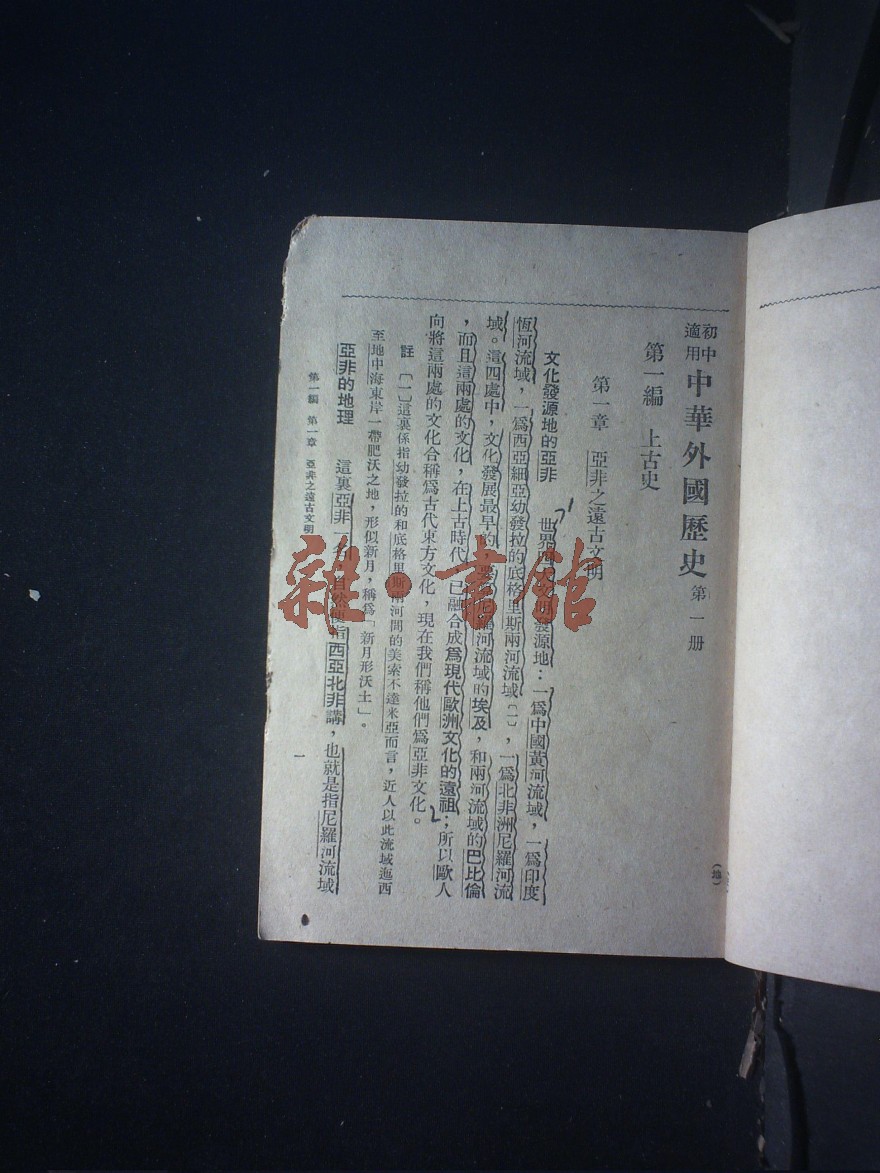 初中適用 中華外國歷史 第一册
第一編 上古史
第一章 亞非之遠古文明
文化發源地的亞非 世界四大文明發源地：一爲中國黃河流域，一爲印度
恆河流域，一爲西亞細亞幼發拉的底格里斯兩河流域〔一〕，一爲北非洲尼羅河流
域。這四處中，文化發展最早的，要尼羅河流域的埃及，和兩河流域的巴比倫
，而且這兩處的文化，在上古時代，已融合成爲現代歐洲文化的遠祖；所以歐人
向將這兩處的文化合稱爲古代東方文化，現在我們稱他們爲亞非文化。
註 〔一〕這裏係指幼發拉的和底格里斯兩河間的美索不達米亞而言，近人以此流域迤西
至地中海東岸一帶肥沃之地，形似新月，稱爲「新月形沃土」。
亞非的地理 這裏亞非一名，自然便指西亞北非講，也就是指尼羅河流域
第一編 第一章 亞非之遠古文明
一
（地）
雜·書館